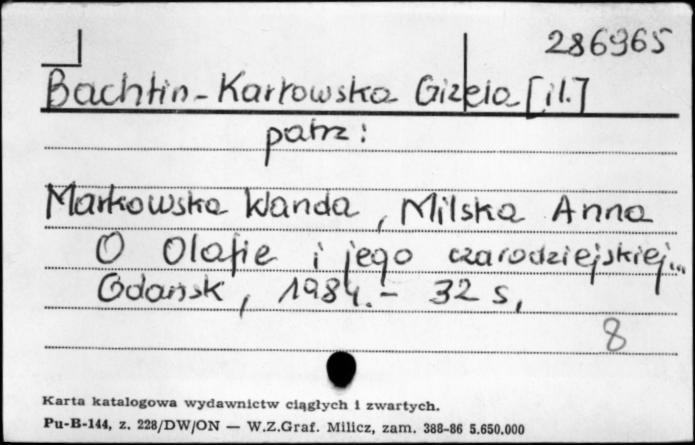 286965
Bachtin-Karłowska Gizela [il.]
patrz:
Markowska Wanda, Milska Anna
O Olafie i jego czarodziejskiej...
Gdańsk, 1984.- 32 s.
8
Karta katalogowa wydawnictw ciągłych i zwartych.
Pu-B-144, z. 228/DW/ON — W.Z.Graf. Milicz, zam. 388-86 5.650.000